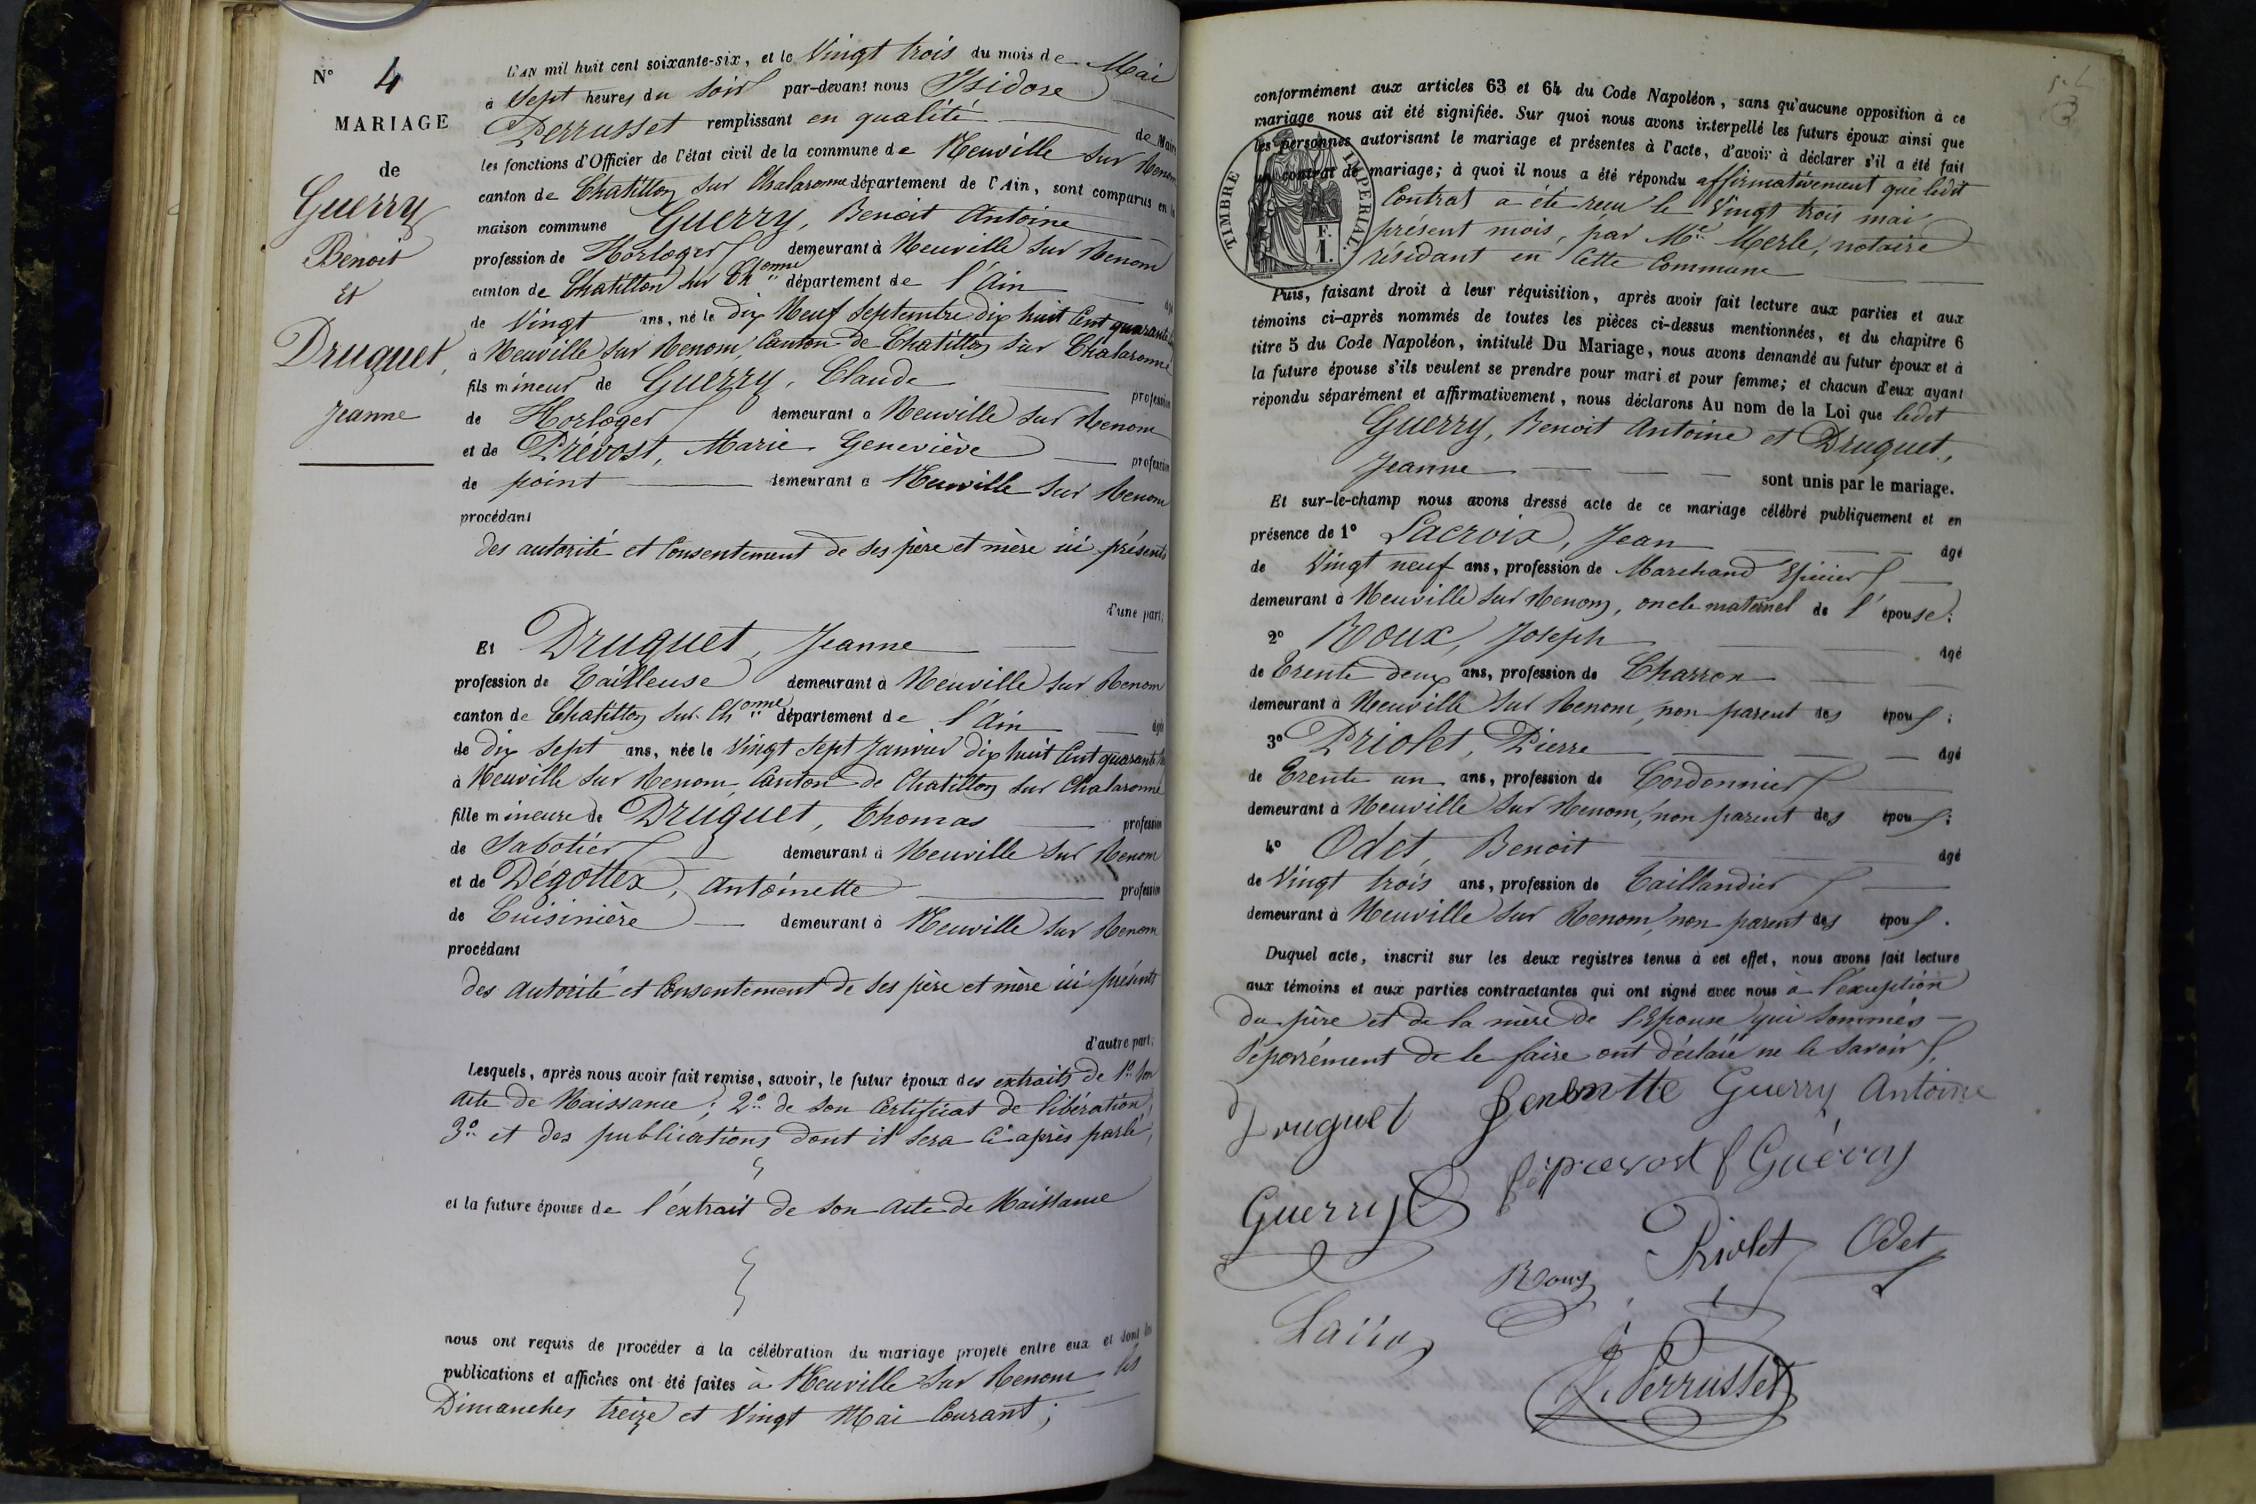 N° 4
MARIAGE
de
Guerry
Benoit
Et
Druguet,
Jeanne
L'AN mil huit cent soixante-six, et le Vingt trois du mois de Mai
à Sept heures du soir par-devant nous Isidore
Perrusset remplissant en qualité de Maire
les fonctions d'Officier de l'état civil de la commune de Neuville sur Renom
canton de Chatillon sur Chalaronne département de l'Ain, sont comparus en la
maison commune Guerry, Benoit Antoine
profession de Horloger demeurant à Neuville sur Renom
canton de Chatillon sur Chonne département de l'Ain âgé
de Vingt ans, né le dix Neuf Septembre dix huit Cent quarante
à Neuville sur Renom, Canton de Chatillon sur Chalaronne
fils mineur de Guerry, Claude profession
de Horloger demeurant à Neuville sur Renom
et de Prévost, Marie Geneviève profession
de point demeurant à Neuville sur Renom
procédant
des autorité et Consentement de ses père et mère ici présents
d'une part;
Et Druguet, Jeanne
profession de Tailleuse demeurant à Neuville sur Renom
canton de Chatillon sur Chonne département de l'Ain âgée
de dix sept ans, née le Vingt sept Janvier dix huit Cent quarante
à Neuville sur Renom, Canton de Chatillon sur Chalaronne
fille mineure de Druguet, Thomas profession
de Sabotier demeurant à Neuville sur Renom
et de Dégottex, Antoinette profession
de Cuisinière demeurant à Neuville sur Renom
procédant
des autorité et Consentement de ses père et mère ici présents
d'autre part;
Lesquels, après nous avoir fait remise, savoir, le futur époux des extraits de 1° son
acte de Naissance; 2° de son Certificat de libération,
3° et des publications dont il sera ci-après parlé,
et la future épouse de l'extrait de son acte de Naissance
nous ont requis de procéder à la célébration du mariage projeté entre eux et dont les
publications et affiches ont été faites à Neuville sur Renom les
Dimanches treize et Vingt Mai Courant;
conformément aux articles 63 et 64 du Code Napoléon, sans qu'aucune opposition à ce
mariage nous ait été signifiée. Sur quoi nous avons interpellé les futurs époux ainsi que
les personnes autorisant le mariage et présentes à l'acte, d'avoir à déclarer s'il a été fait
un contrat de mariage; à quoi il nous a été répondu affirmativement que ledit
Contrat a été reçu le Vingt trois mai
présent mois, par Me Merle, notaire
résidant en Cette Commune
TIMBRE IMPERIAL.
F.
1.
Puis, faisant droit à leur réquisition, après avoir fait lecture aux parties et aux
témoins ci-après nommés de toutes les pièces ci-dessus mentionnées, et du chapitre 6
titre 5 du Code Napoléon, intitulé Du Mariage, nous avons demandé au futur époux et à
la future épouse s'ils veulent se prendre pour mari et pour femme; et chacun d'eux ayant
répondu séparément et affirmativement, nous déclarons Au nom de la Loi que ledit
Guerry, Benoit Antoine et Druguet,
Jeanne sont unis par le mariage.
Et sur-le-champ nous avons dressé acte de ce mariage célébré publiquement et en
présence de 1° Lacroix, Jean âgé
de Vingt neuf ans, profession de Marchand Epicier
demeurant à Neuville sur Renom, oncle maternel de l'épouse;
2° Roux, Joseph âgé
de Trente deux ans, profession de Charron
demeurant à Neuville sur Renom, non parent des époux;
3° Priolet, Pierre âgé
de Trente un ans, profession de Cordonnier
demeurant à Neuville sur Renom, non parent des époux;
4° Odet, Benoit âgé
de Vingt trois ans, profession de Taillandier
demeurant à Neuville sur Renom, non parent des époux.
Duquel acte, inscrit sur les deux registres tenus à cet effet, nous avons fait lecture
aux témoins et aux parties contractantes qui ont signé avec nous à l'exception
du père et de la mère de l'Epouse qui sommés
séparément de le faire ont déclaré ne le savoir.
Druguet Guerry Antoine
prevost f Guerry
Guerry
Roux Priolet Odet
I. Perrusset